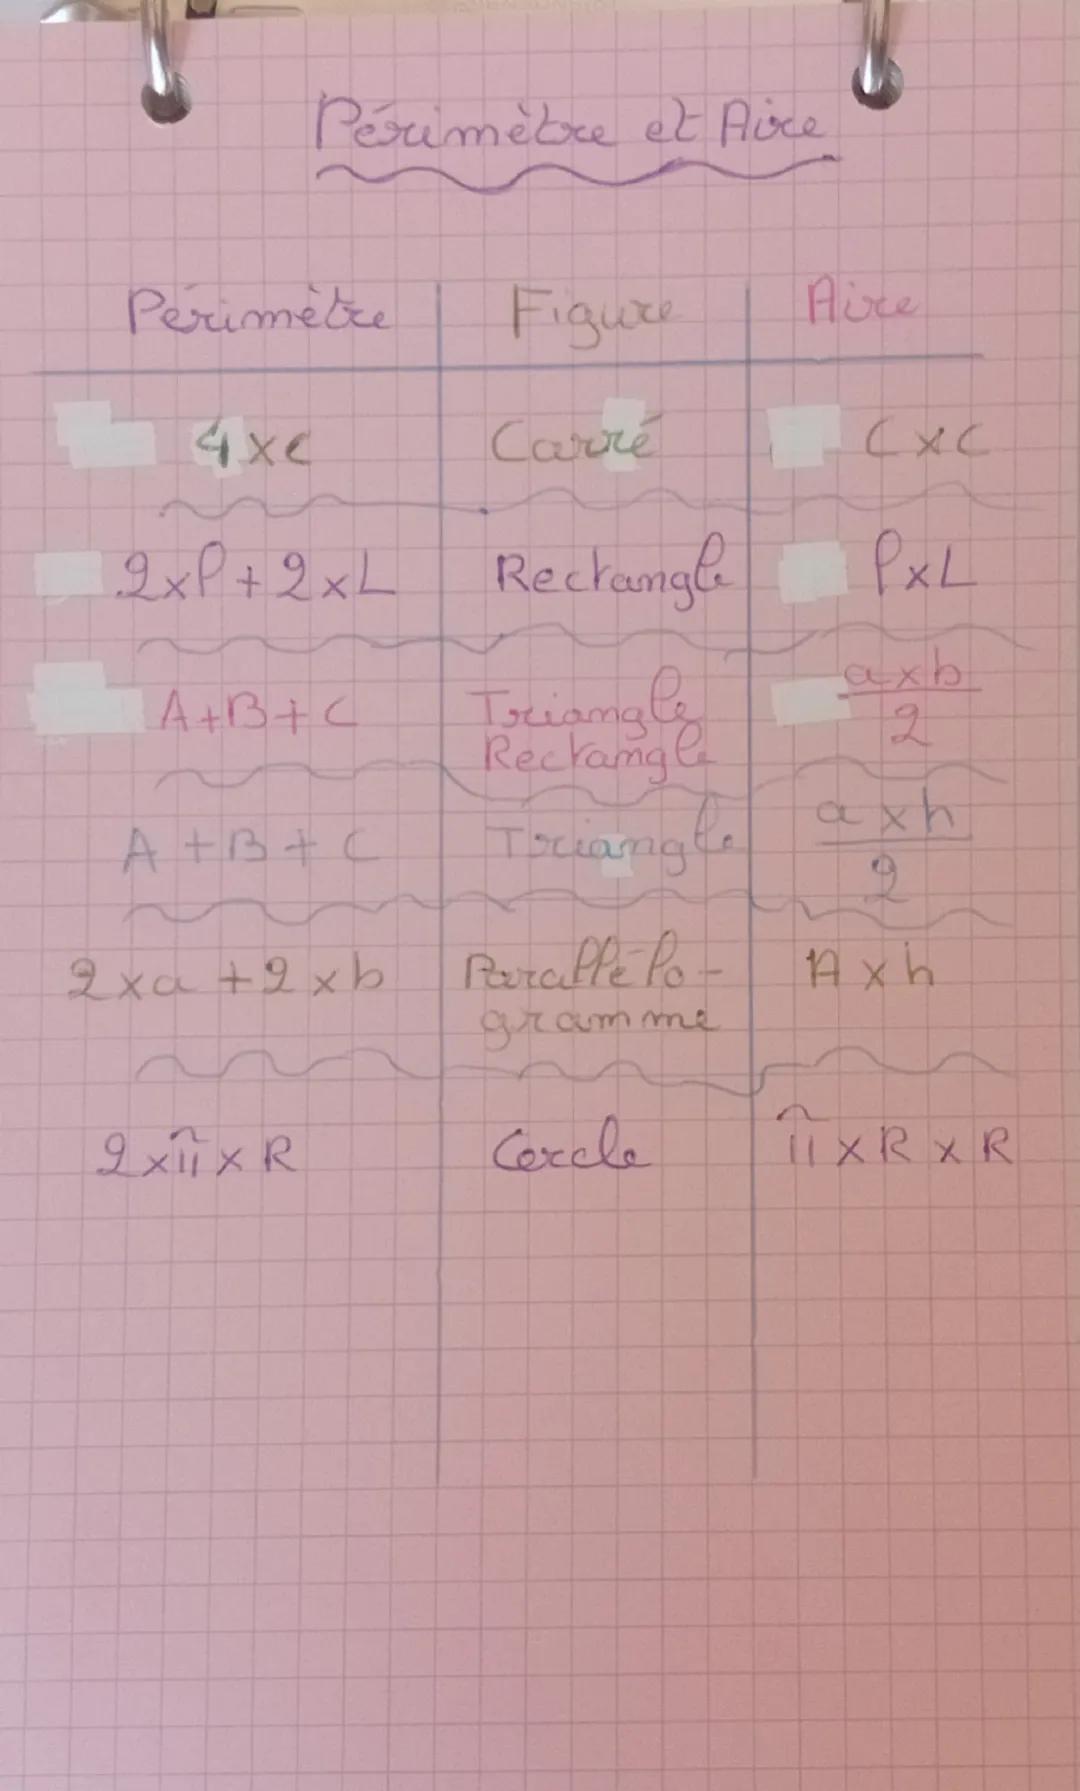 Périmètre et Aire
Périmètre Figure Aire
4xc Carré CxC
2xl+2xL Rectangle lxL
A+B+C Triangle Rectangle axb/2
A+B+C Triangle axh/2
2xa+2xb Parallélo-gramme Axh
2xπxR Cercle πxRxR